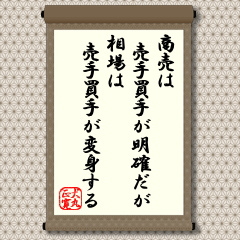 商売は
売手買手が明確だが
相場は
売手買手が変身する